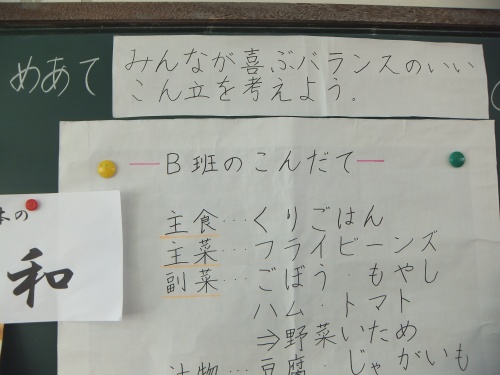 めあて
みんなが喜ぶバランスのいい
こん立を考えよう。
B班のこんだて
主食…くりごはん
主菜…フライビーンズ
副菜…ごぼう・もやし
ハム・トマト
⇒野菜いため
汁物…豆腐・じゃがいも
本の
和